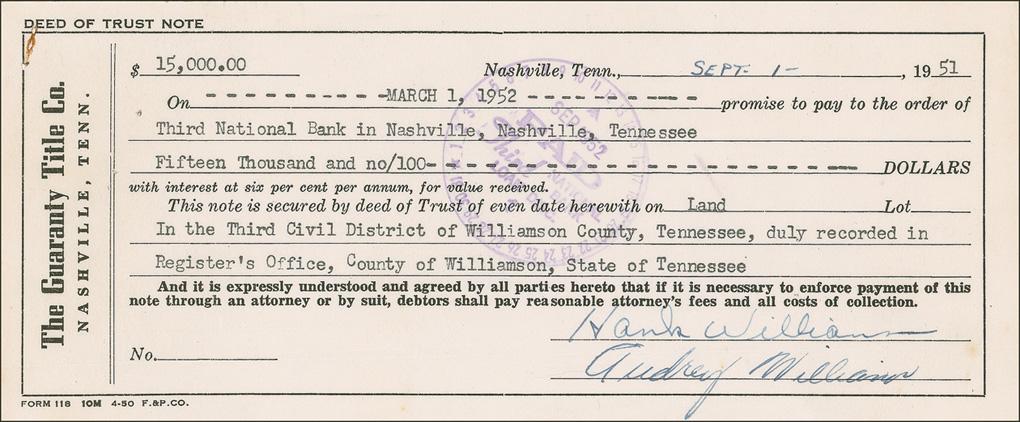 DEED OF TRUST NOTE
The Guaranty Title Co.
NASHVILLE, TENN.
$ 15,000.00 Nashville, Tenn., SEPT. 1- , 1951
On - - - - - - - - - -MARCH 1, 1952 - - - - - - - - - - promise to pay to the order of
Third National Bank in Nashville, Nashville, Tennessee
Fifteen Thousand and no/100- - - - - - - - - - - - - - - - - - - - - - DOLLARS
with interest at six per cent per annum, for value received.
This note is secured by deed of Trust of even date herewith on Land Lot
In the Third Civil District of Williamson County, Tennessee, duly recorded in
Register's Office, County of Williamson, State of Tennessee
And it is expressly understood and agreed by all parties hereto that if it is necessary to enforce payment of this
note through an attorney or by suit, debtors shall pay reasonable attorney's fees and all costs of collection.
Hank Williams
No.
Audrey Williams
FORM 118 10M 4-50 F.&P.CO.
PAID
Third
NATIONAL
BANK